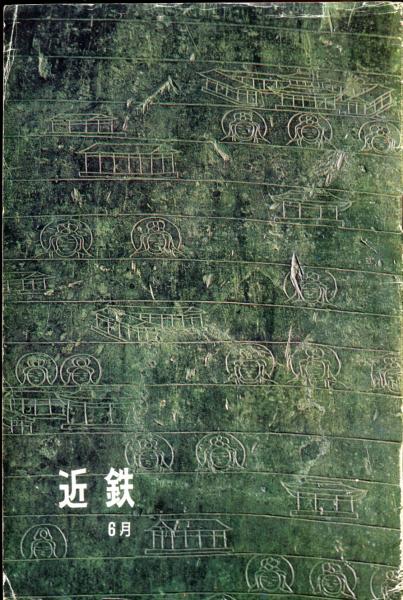 近鉄
6月